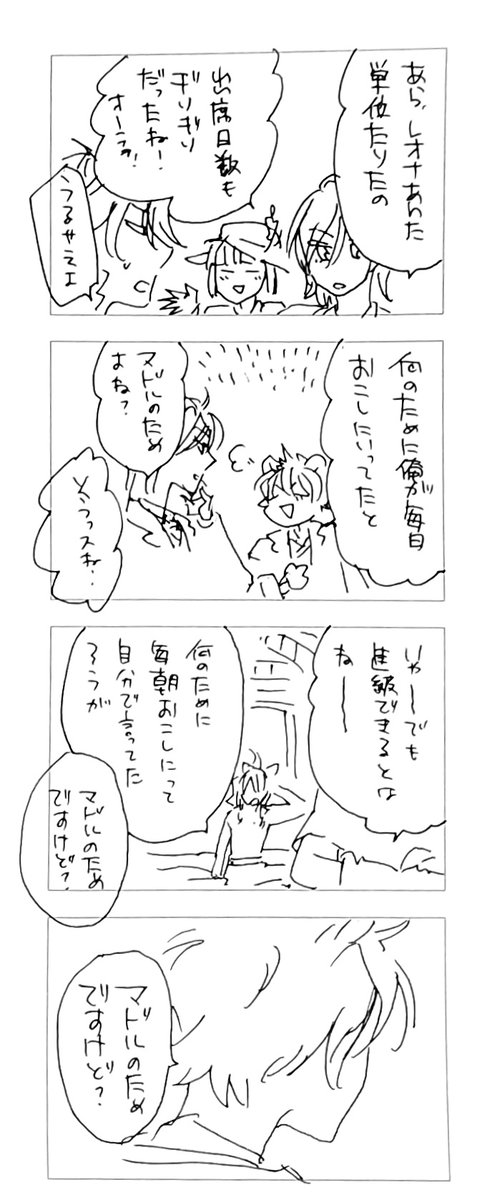 あら、レオナあんた
単位たりたの
出席日数も
ぎりぎり
だったねー!
うるサイエ
何のために俺が毎日
おこしにいってたと
マドルのため
よね?
いやーでも
進級できるとは
ねー
何のために
毎朝おこしにって
自分で言ってた
ろうが
マドルのため
ですけど?
マドルのため
ですけど?